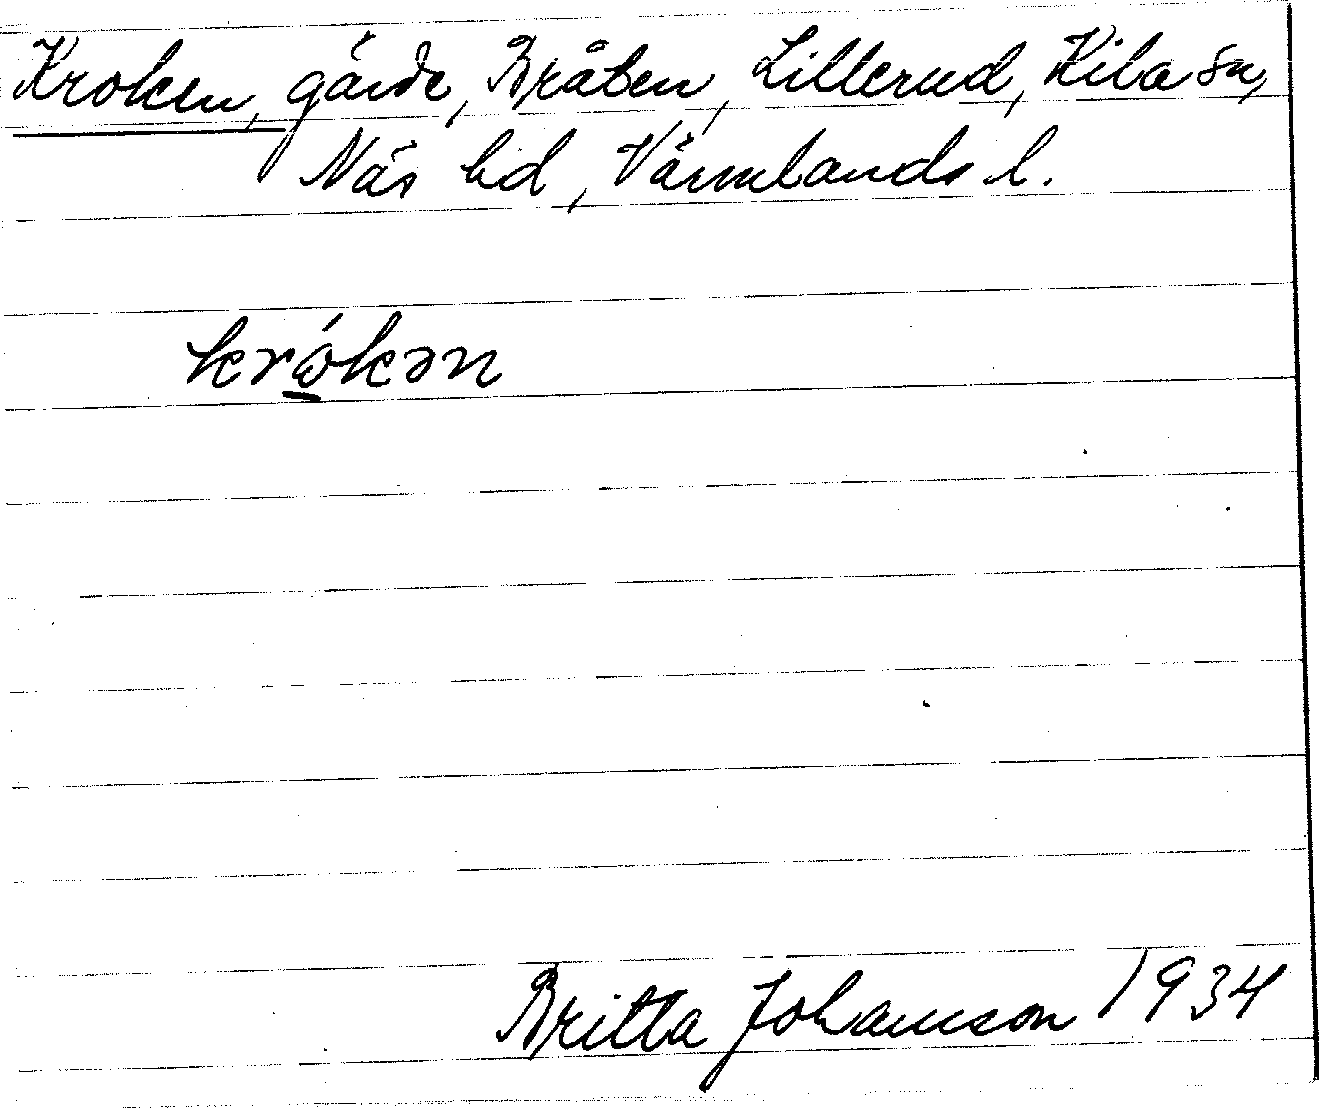 Kroken, gärde, Bråten, Lillerud, Kila sn,
Näs hd, Värmlands l.
krókən
Britta Johansson 1934